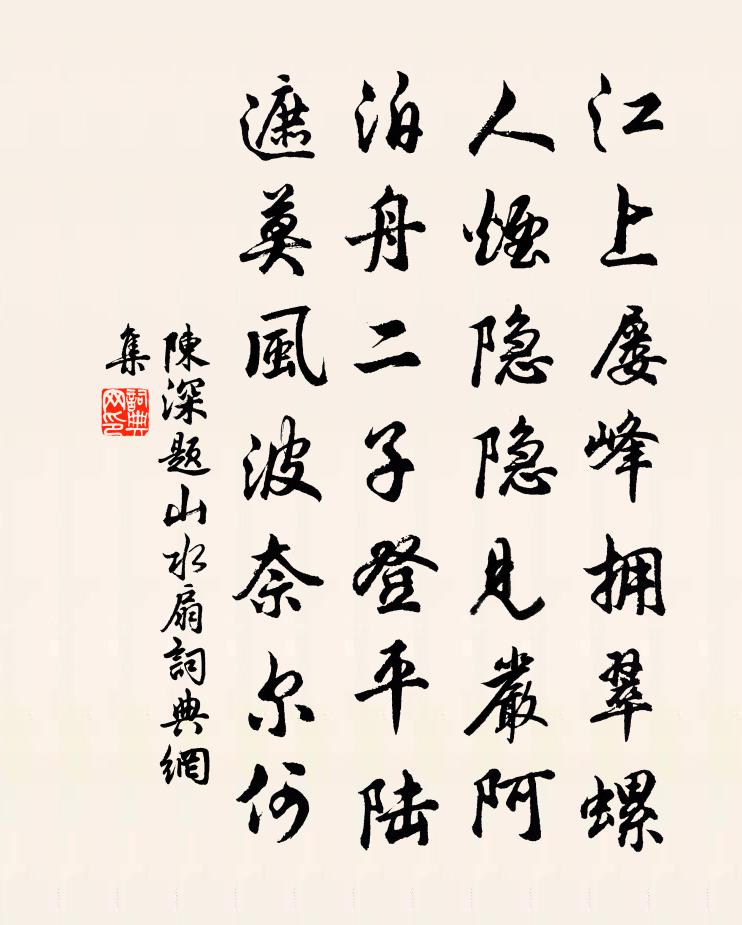 江上屡峰拥翠螺
人煙隐隐見嚴阿
泊舟二子登平陆
遮莫風波奈尔何
陳深题山水扇詞典網
集
詞典
网印